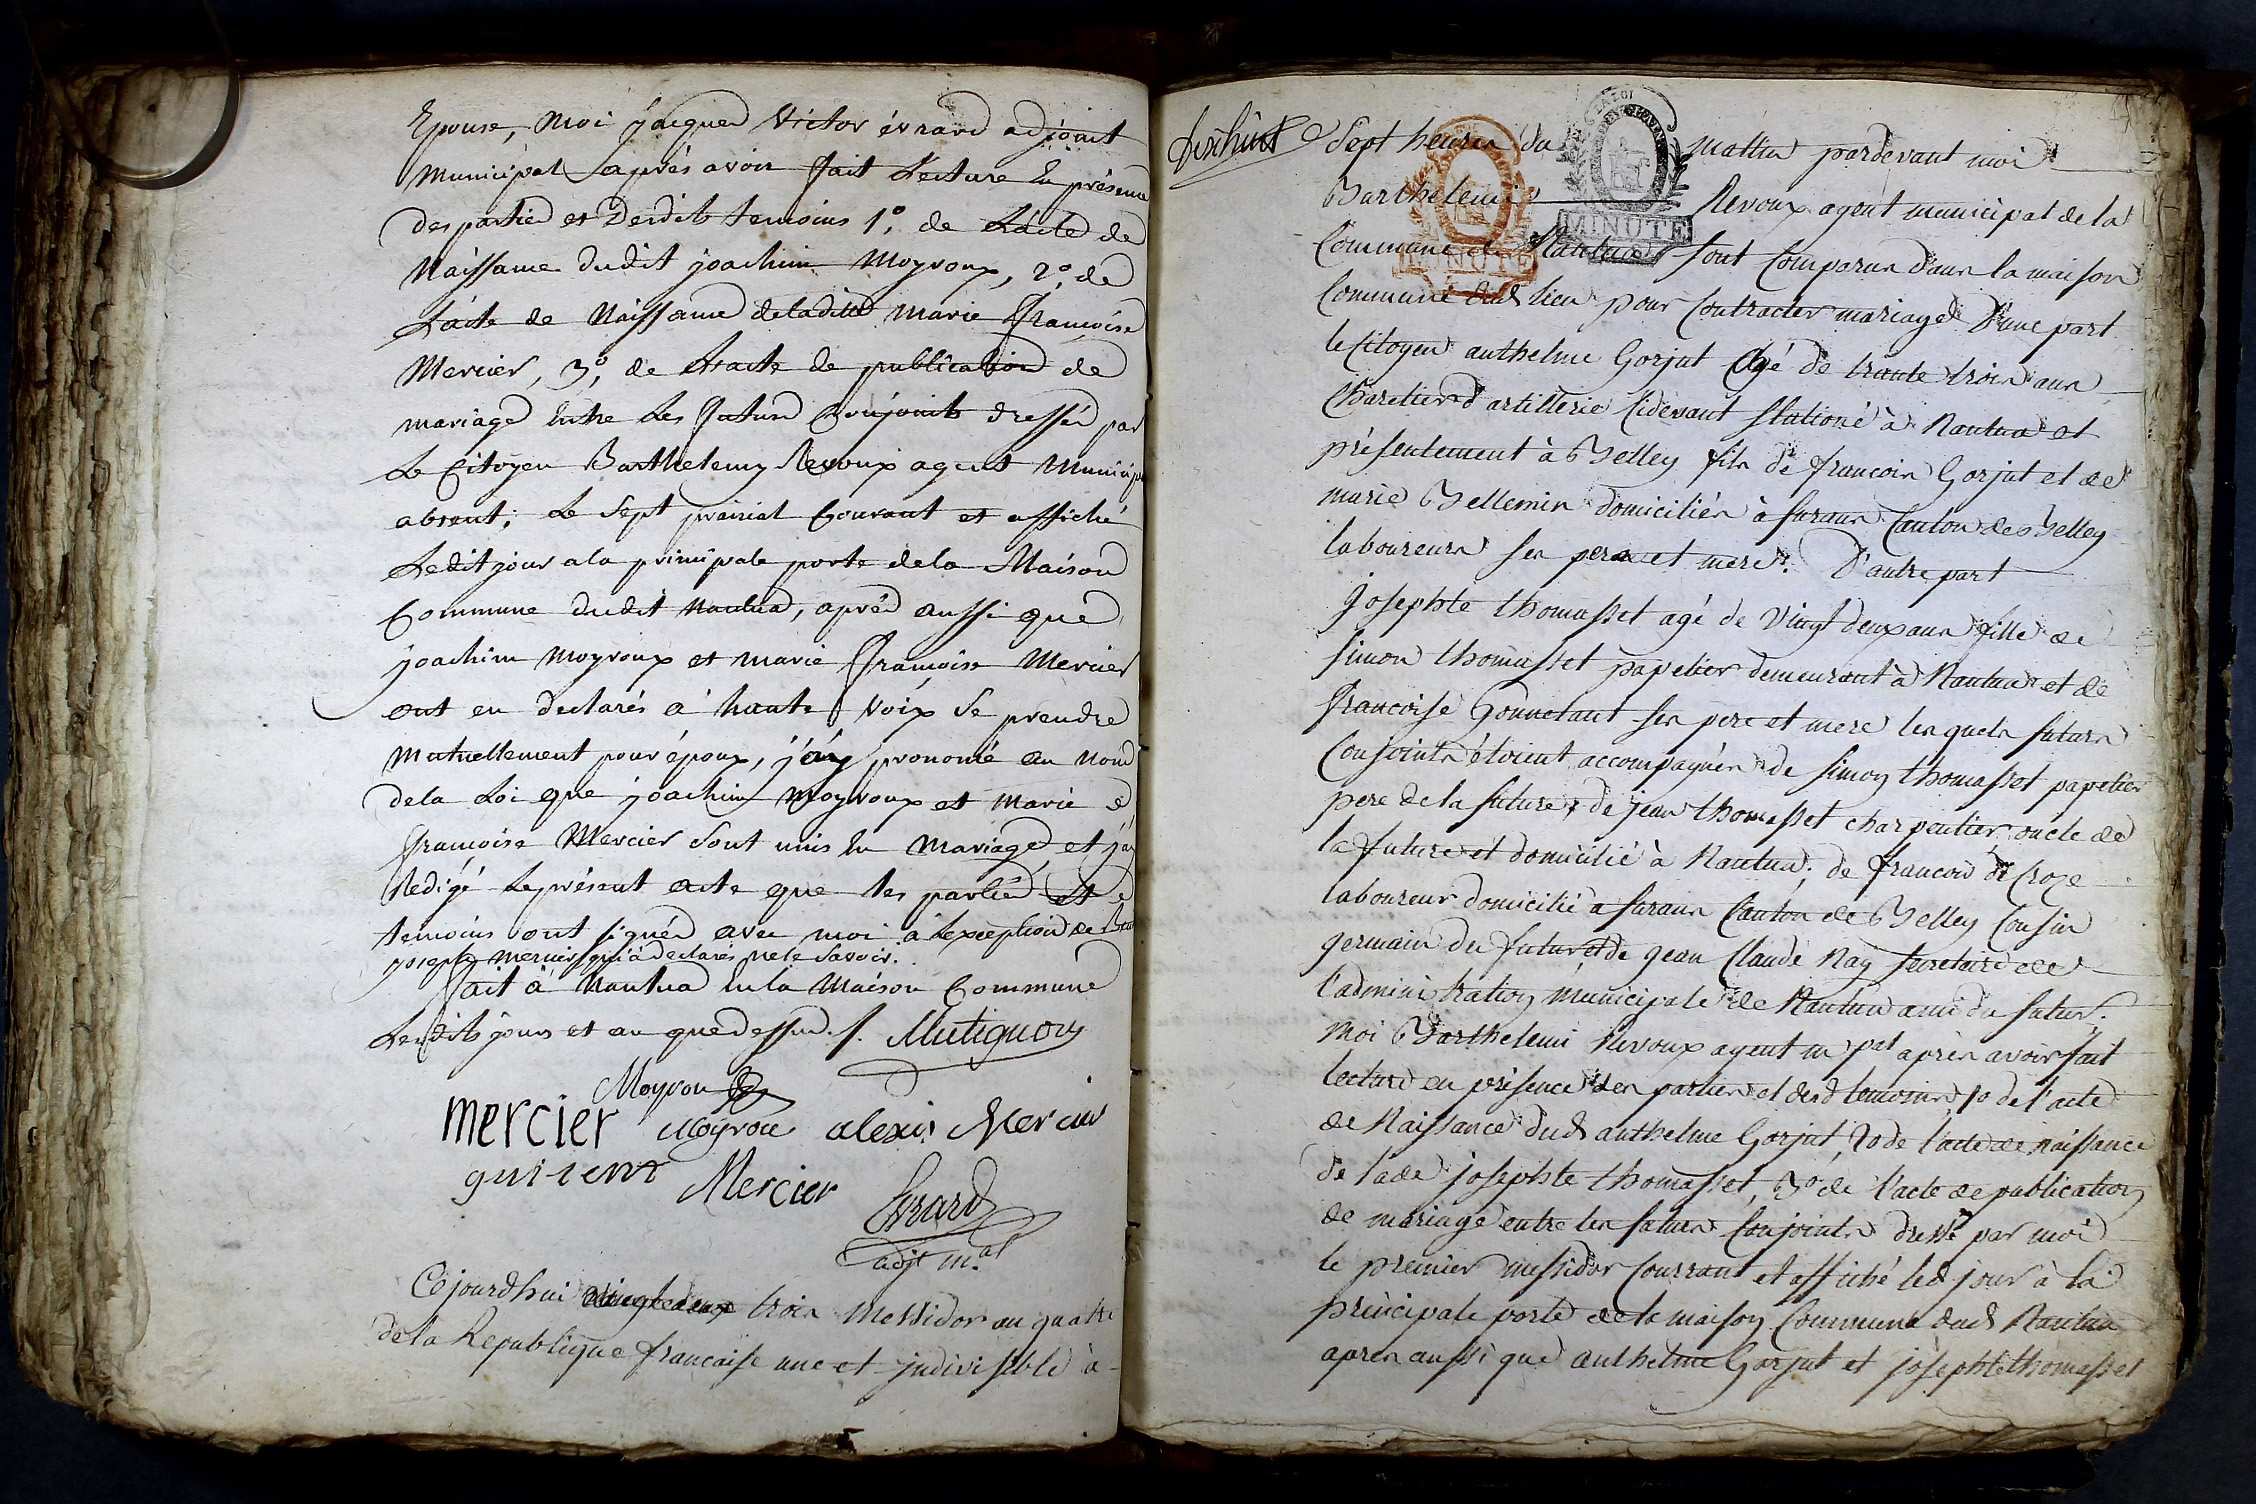 Epouse, moi jacques Victor évrard adjoint
municipal après avoir fait Lecture En présence
des parties et Desdits temoins 1°. de L'acte de
Naissance dudit joachim Moyroux, 2°. de
L'acte de Naissance deladitte marie françoise
Mercier, 3°. de L'acte de publication de
mariage Entre Les futurs Conjoints dressés par
Le Citoyen Barthelemy Revoux agent Municip
absent; Le Sept prairial Courant et affiché
Ledit jour a la principale porte dela Maison
Commune dudit Nantua, après aussi que
joachim moyroux et marie françoise Mercier
ont eu declarés à haute voix se prendre
mutuellement pour époux, j'ay prononcé au nom
dela Loi que joachim Moyroux et Marie
françoise Mercier sont unis En mariage, et j'ay
Redigé Le présent acte que les parties et
temoins ont signés avec moi à L'exception de
joseph mercier qui a declarés ne le savoir.
fait à Nantua En la Maison Commune
Lesdits jours et an que dessus. f. Mutignon
Moyroux
mercier Moyroux alexis Mercier
Mercier
Evrard
adjt m.al
Cejourdhui vingt deux trois Messidor an quatre
de la Republique francaise une et indivisible à
Sept heures du matin pardevant moi
LA LOI
Barthelemi Revoux agent municipal de la
MINUTE
Commune de Nantua sont Comparus dans la maison
MINUTE
Commune dud lieu pour Contracter mariage D'une part
le Citoyen anthelme Gorjut Agé de trante trois ans
Charetier d'artillerie Cidevant stationé à Nantua et
présentement à Belley fils de francois Gorjut et de
marie Bellemin domiciliés à furans Canton de Belley
laboureurs ses pere et mere. D'autre part
Josephte thomasset agé de Vingt deux ans fille de
simon thomasset papetier demeurant à Nantua et de
francoise Gonnetant ses pere et mere lesquels futurs
Conjoints étoient accompagnés de simon thomasset papetier
pere de la future, de jean thomasset charpentier, oncle de
la future et domicilié à Nantua, de francois de Croze
laboureur domicilié a furans Canton de Belley Cousin
germain du futur et de jean Claude Ray secretaire de
l'administration municipale de Nantua ami du futur.
Moi Barthelemi Revoux agent m pal après avoir fait
lecture en présence des parties et desd temoins 1o de l'acte
de Naissance dud anthelme Gorjut, 2o de l'acte de naissance
de lade josephte thomasset, 3o de l'acte de publication
de mariage entre les futurs Conjoints dressé par moi
le premier messidor Courrant et affiché led jour à la
principale porte de la maison Commune dud Nantua
apres aussi que anthelme Gorjut et josephte thomasset